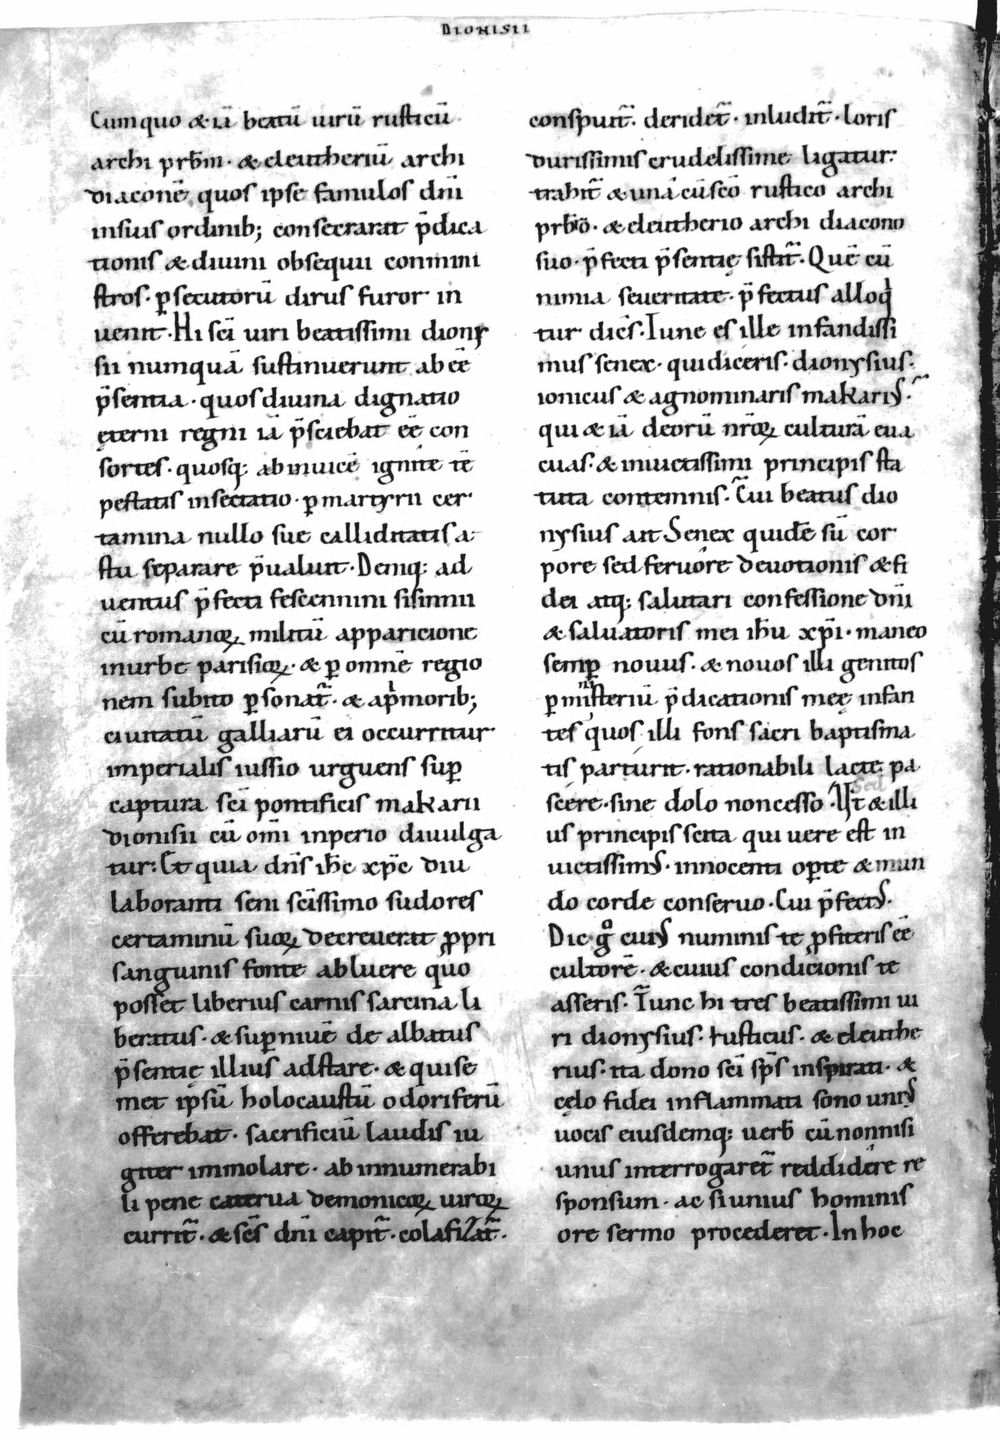 DIONISII
Cum quo & iā beatū uirū rusticū
archi prƀm · & eleutheriū archi
diaconē quos ipse famulos dn̄i
in suis ordinib; consecrarat p̄dica
tionis & diuini obsequii conmini
stros · ꝑsecutorū dirus furor in
uenit · Hi sc̄i uiri beatissimi diony
sii numquā sustinuerunt ab eē
p̄sentia · quos diuina dignatio
ęterni regni iā p̄sciebat eē con
sortes · quosq; ab inuicē ignite tē
pestatis insectatio · ꝑ martyrii cer
tamina nullo sue calliditatis a
stu separare p̄ualuit · Deniq; ad
uentus p̄fecti fescennini sisinnii
cū romanoꝝ militū apparicione
in urbe parisioꝝ · & ꝑ omnē regio
nem subito ꝑsonat̄ · & a pͥmorib;
ciuitatū galliarū ei occurritur
imperialis iussio urguens suꝑ
captura sc̄i pontificis makarii
dionisii cū om̄i inperio diuulga
tur : Et quia dn̄s ihc̄ xpc̄ diu
laboranti seni sc̄issimo sudores
certaminū suoꝝ decreuerat ꝓpri
sanguinis fonte abluere quo
posset liberius carnis sarcina li
beratus · & suꝑ niuē de albatus
p̄sentię illius adstare · & qui se
met ipsū holocaustū odoriferū
offerebat · sacrificiū laudis iu
giter immolare · ab innumerabi
li pene caterua demonicoꝝ uiroꝝ
currit̄ · & sc̄s dn̄i capit̄ · colafizat̄ ·
conspuit̄ · deridet̄ · inludit̄ · loris
durissimis crudelissime ligatur :
trahit̄ & una cū sc̄o rustico archi
prƀo · & eleutherio archi diacono
suo · p̄fecti p̄sentię sistit̄ · Quē cū
nimia seueritate · p̄fectus alloqͥ
tur dicēs · Tunc es ille infandissi
mus senex · qui diceris · dionysius ·
ionicus & agnominaris makarius ·
qui & iā deorū nr̄oꝝ culturā eua
cuas · & inuictissimi principis sta
tuta contemnis · Cui beatus dio
nysius ait Senex quidē sū cor
pore sed feruore deuotionis & fi
dei atq; salutari confessione dn̄i
& saluatoris mei ihū xp̄i · maneo
semꝑ nouus · & nouos illi genitos
ꝑ misteriū p̄dicationis meę infan
tes quos illi fons sacri baptisma
tis parturit · rationabili lacte pa
scere · sine dolo non cesso · Ast & illi
us principis scita qui uere est in
uictissimus · innocenti oꝑte & mun
do corde conseruo · Cui p̄fectus ·
Dic gͦ cuius numinis te ꝓfiteris eē
cultorē · & cuius condicionis te
asseris · Tunc hi tres beatissimi ui
ri dionysius · rusticus · & eleuthe
rius · ita dono sc̄i sp̄s inspirati · &
celo fidei inflammati sono unius
uocis eiusdemq; uerƀ cū non nisi
unus interrogaret̄ reddidere re
sponsum · ac si unius hominis
ore sermo procederet · In hoc